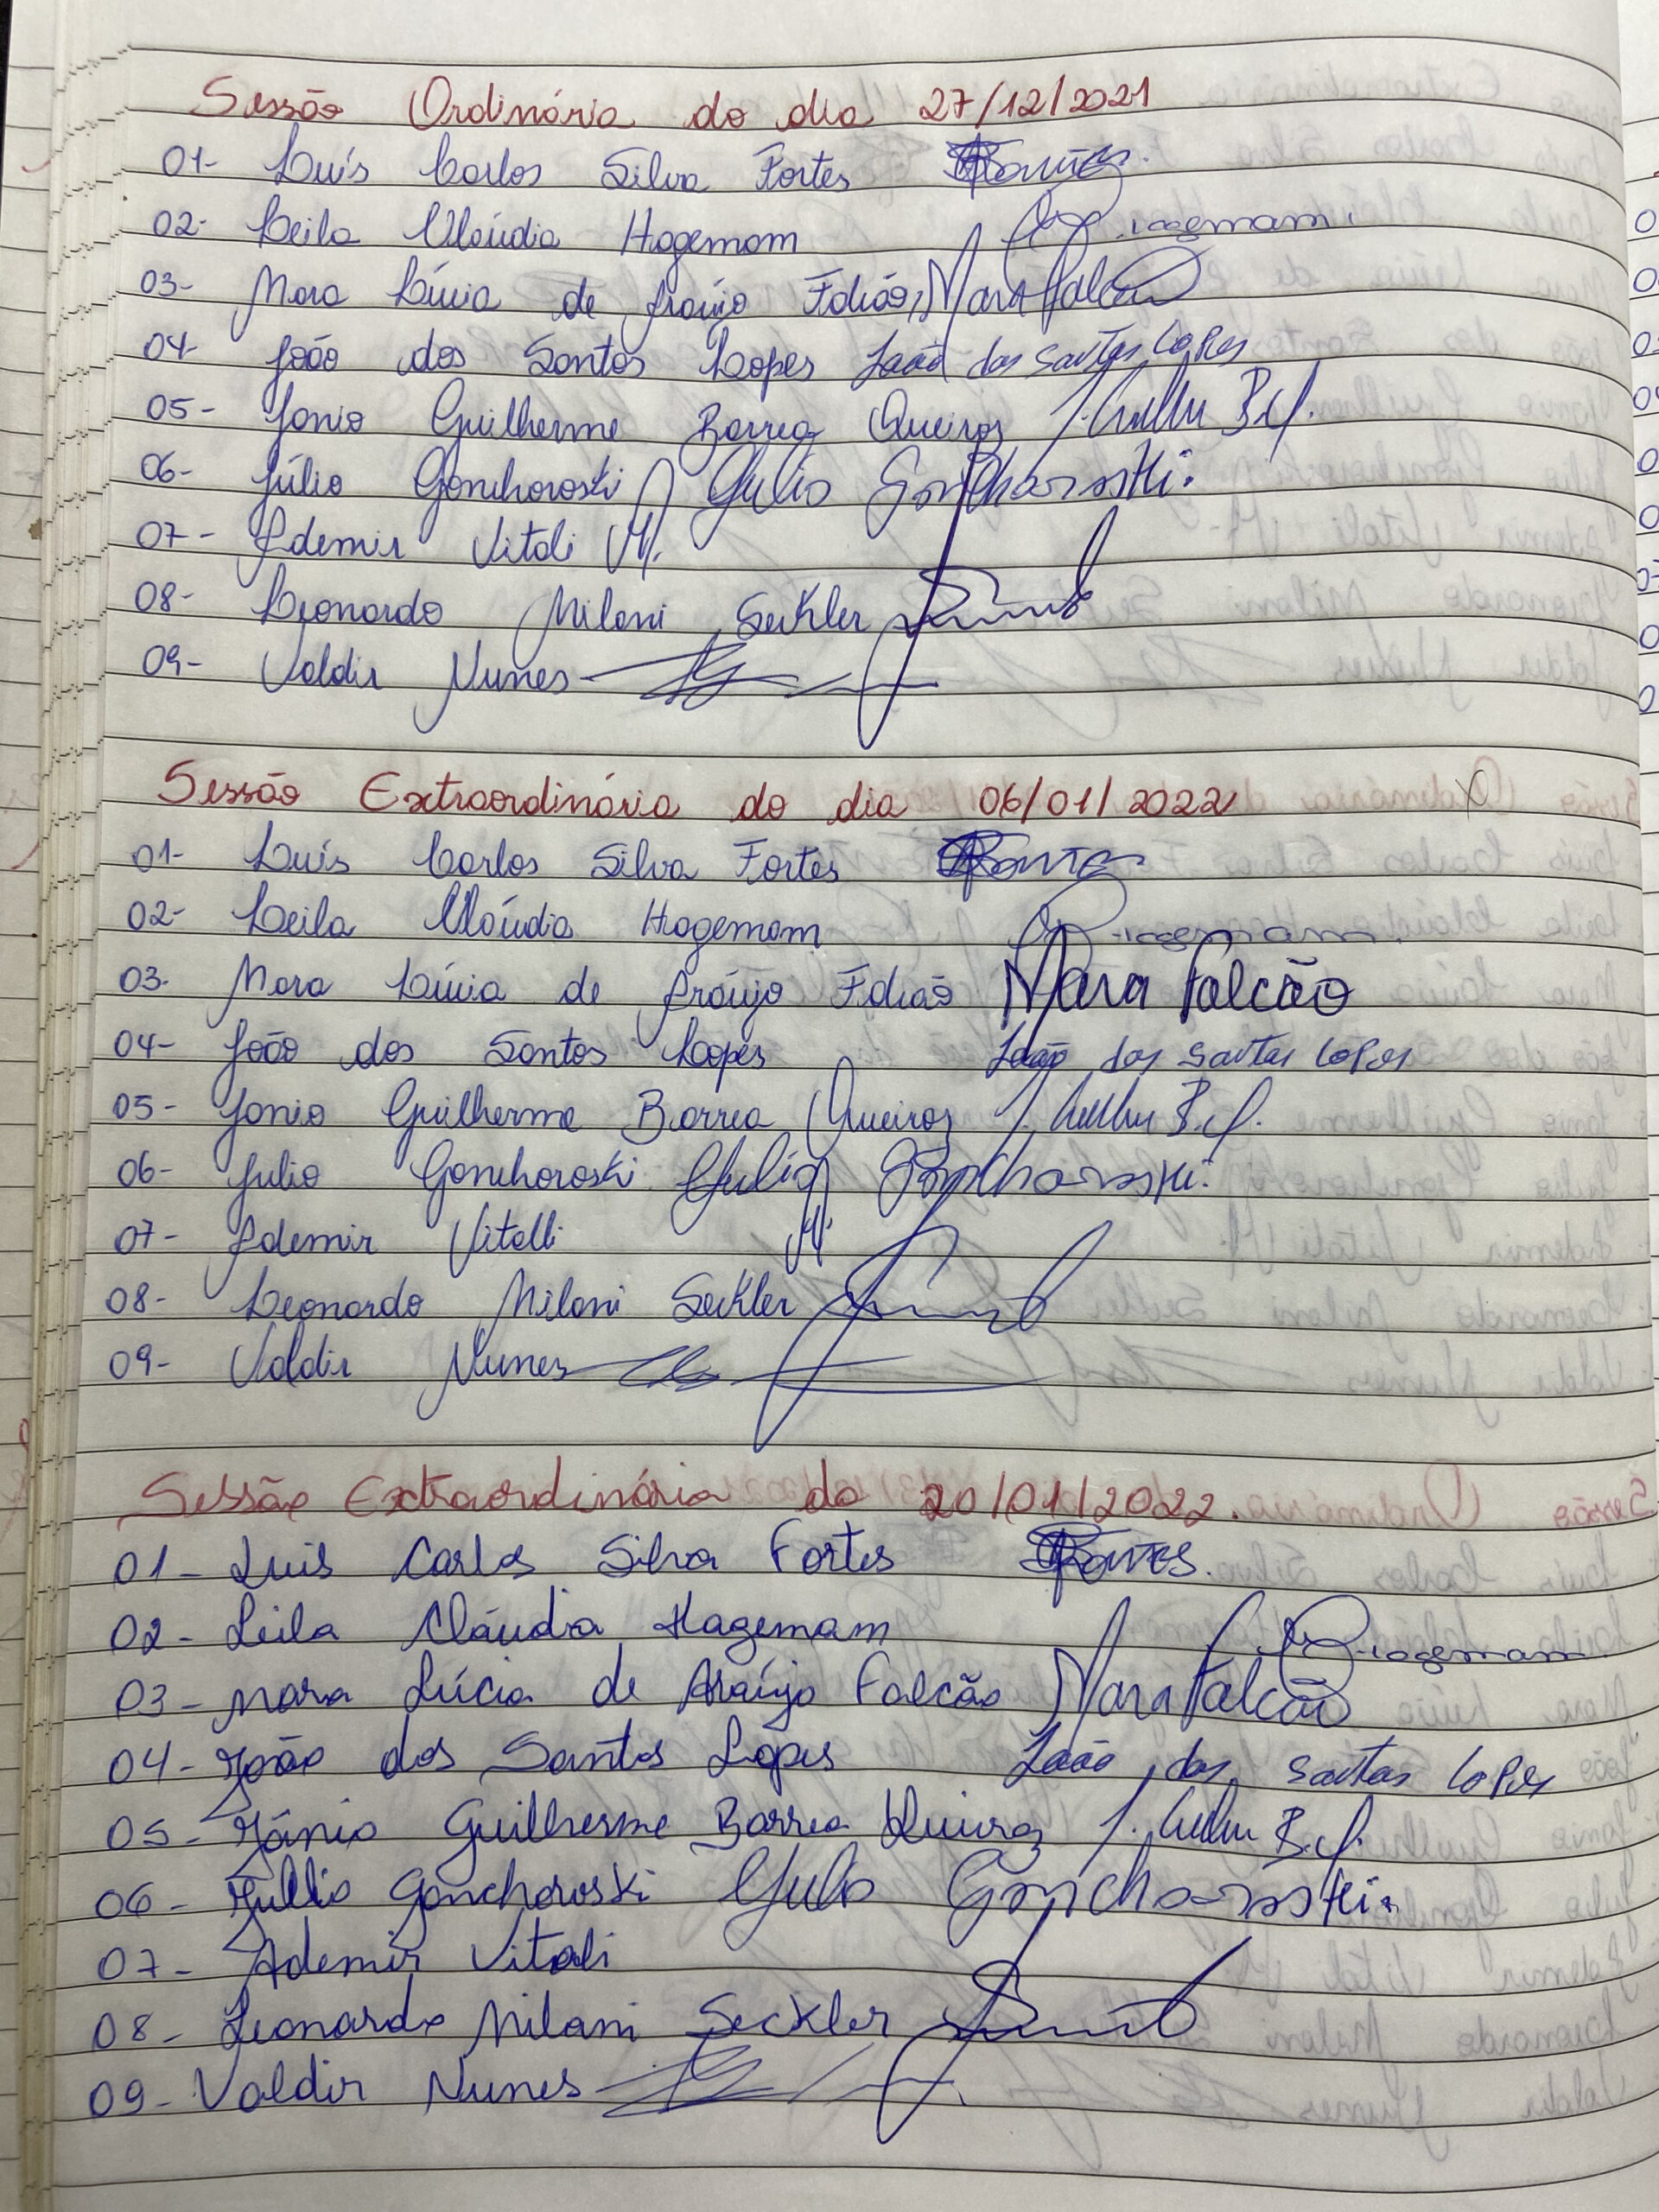 Sessão Ordinária do dia 27/12/2021
01- Luís Carlos Silva Fortes Fortes.
02- Leila Cláudia Hagemam Hagemam.
03- Mara Lúcia de Araújo Falcão, Mara Falcão
04- João dos Santos Lopes João dos Santos Lopes
05- Jonio Guilherme Barrea Queiroz J. Guilhe B.Q.
06- Júlio Gonchoroski Julio Goncharoski.
07- Ademir Vitali
08- Leonardo Milani Seckler
09- Valdir Nunes
Sessão Extraordinária do dia 06/01/2022
01- Luís Carlos Silva Fortes Fortes
02- Leila Cláudia Hagemam Hagemam.
03- Mara Lúcia de Araújo Falcão Mara Falcão
04- João dos Santos Lopes João dos Santos Lopes
05- Jonio Guilherme Barrea Queiroz J. Guilhe B.Q.
06- Julio Gonchoroski Julio Goncharoski.
07- Ademir Vitalli
08- Leonardo Milani Seckler
09- Valdir Nunes
Sessão Extraordinária do 20/01/2022.
01- Luis Carlos Silva Fortes Fortes.
02- Leila Cláudia Hagemam Hagemam
03- Mara Lúcia de Araújo Falcão Mara Falcão
04- João dos Santos Lopes João dos Santos Lopes
05- Jânio Guilherme Barrea Quiroz J. Guilhe B.Q.
06- Júllio Gonchoroski Julio Goncharoski.
07- Ademir Vitali
08- Leonardo Milani Seckler
09- Valdir Nunes